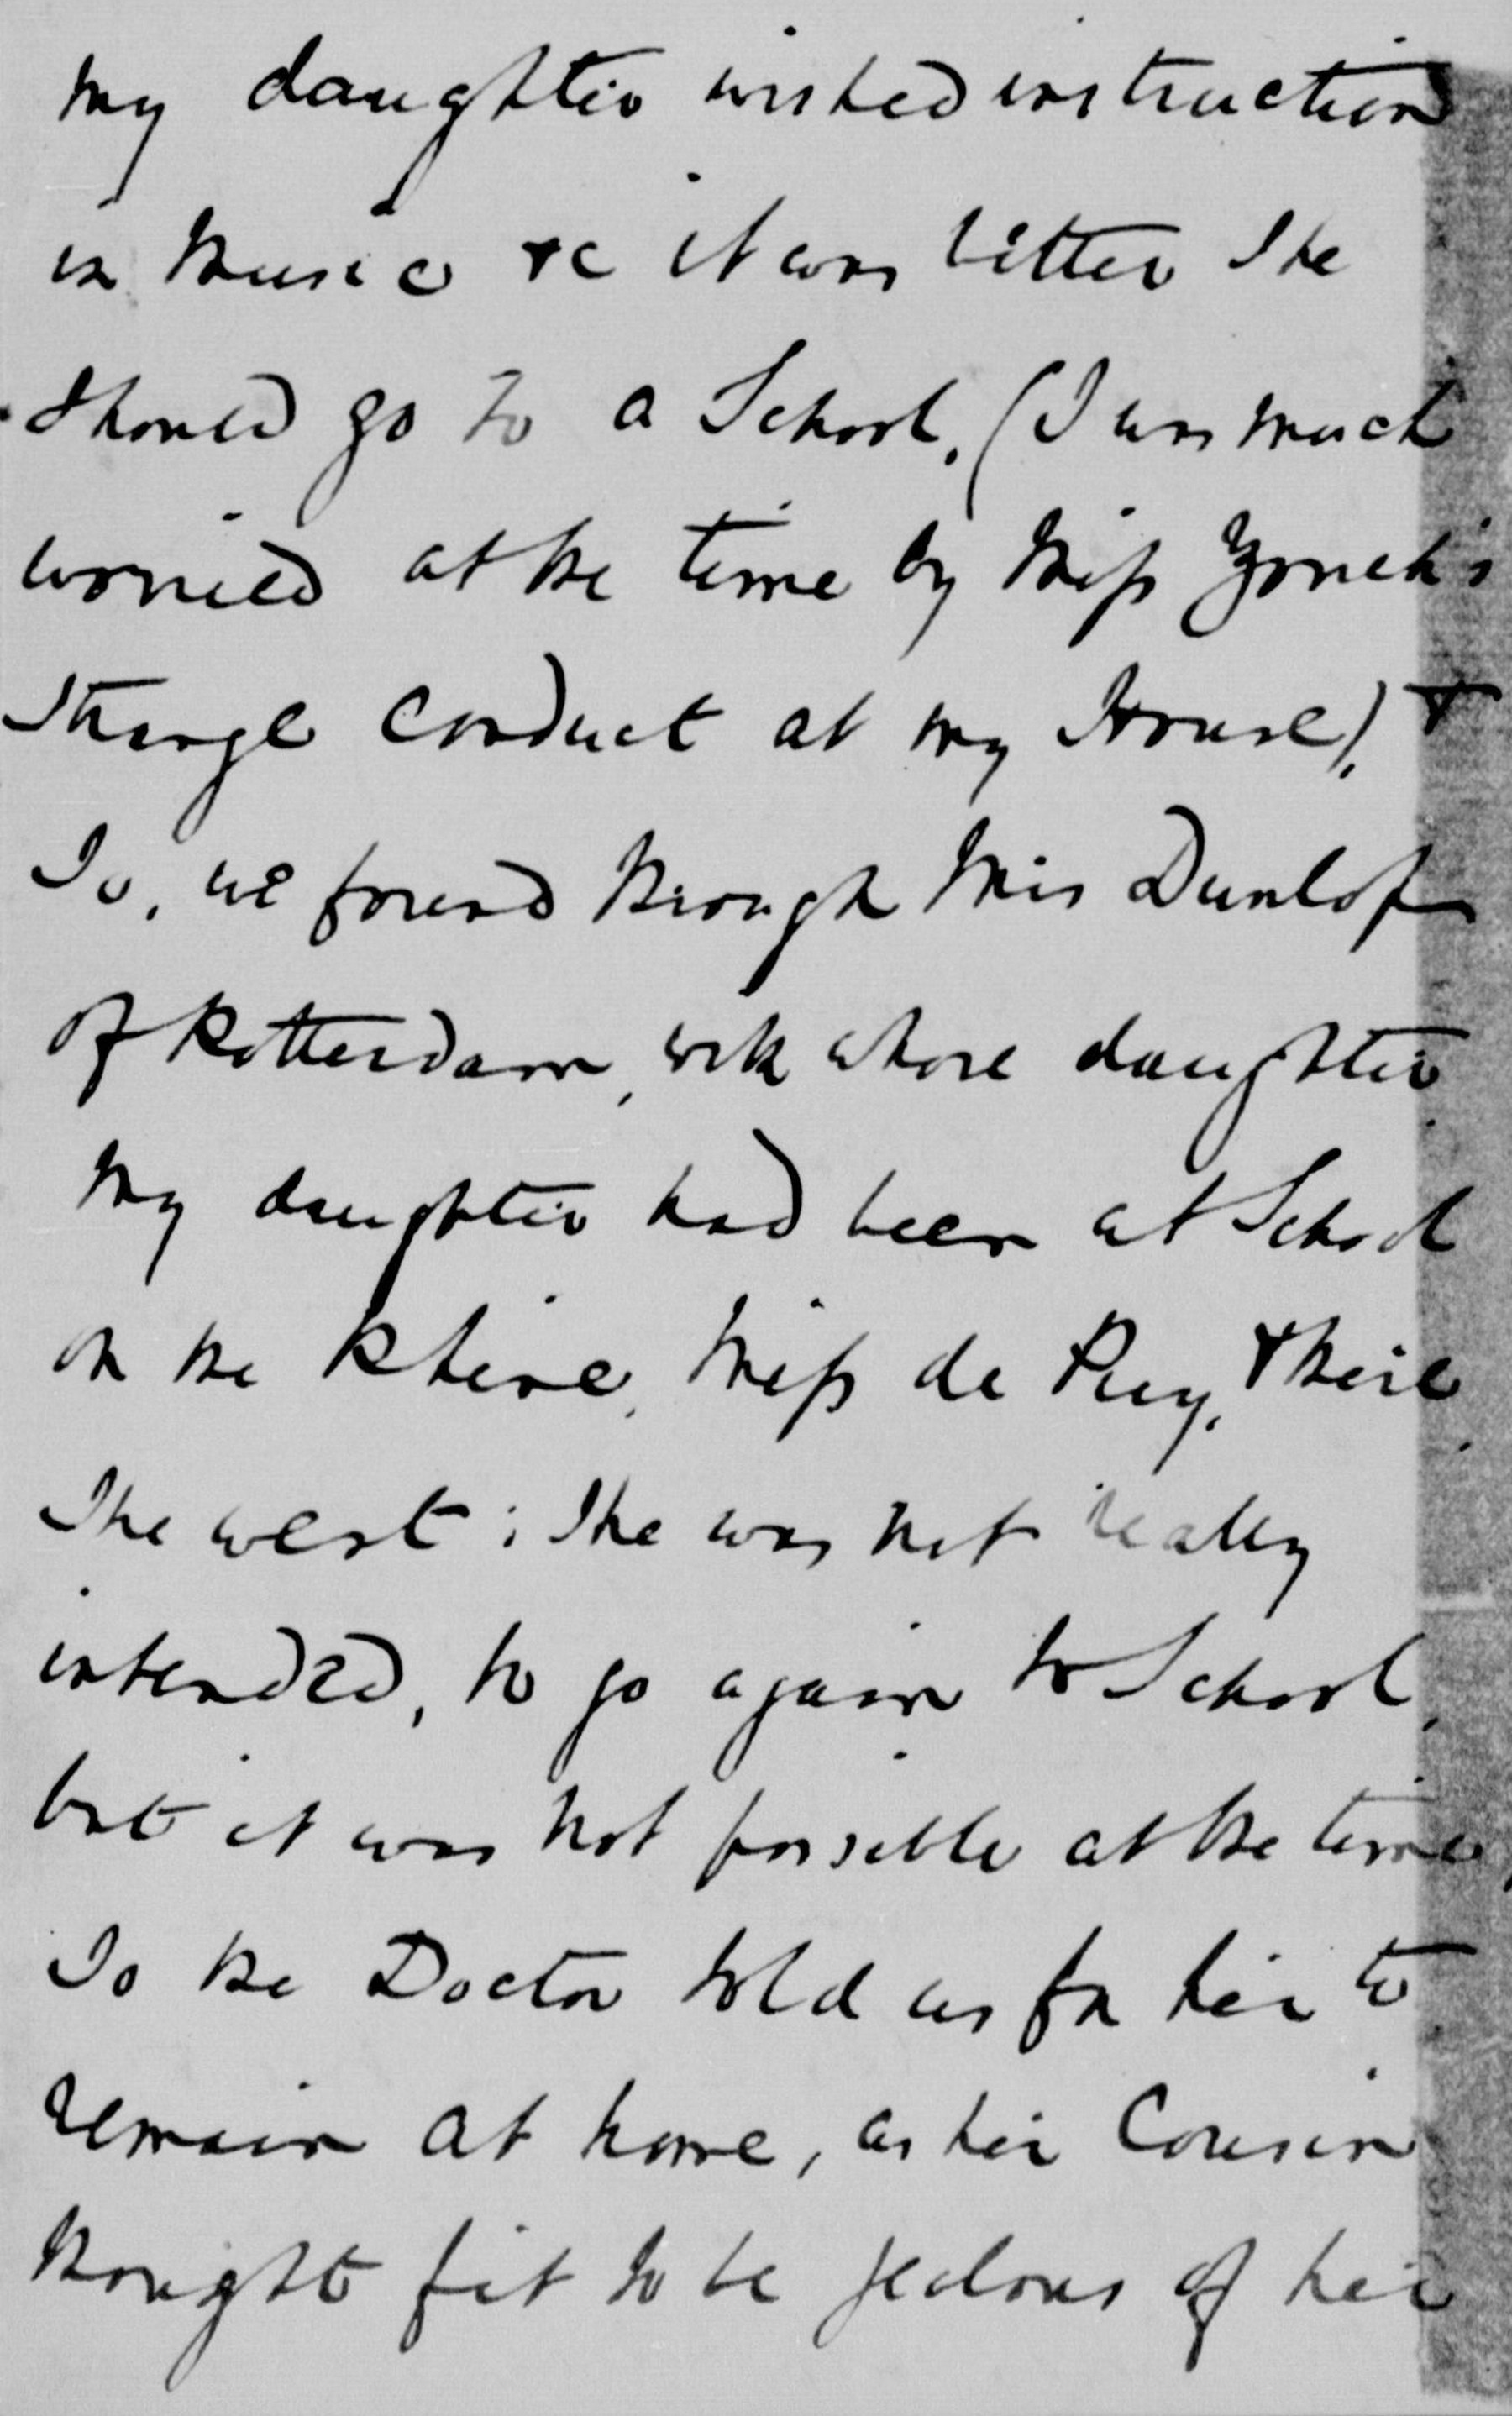 my daughter wished instruction
in Music &c it was better she
should go to a School. (I was much
worried at the time by Miss
strange conduct at my House). &
So, we found through Mrs Dunlop
of Rotterdam, with whose daughter
my daughter had been at School
on the Rhine, Miss de Puy, & there
she went; she was not really
intended, to go again to School,
but it was not possible at the time,
So the Doctor told us for her to
remain at home, as her Cousin
thought fit to be jealous of her